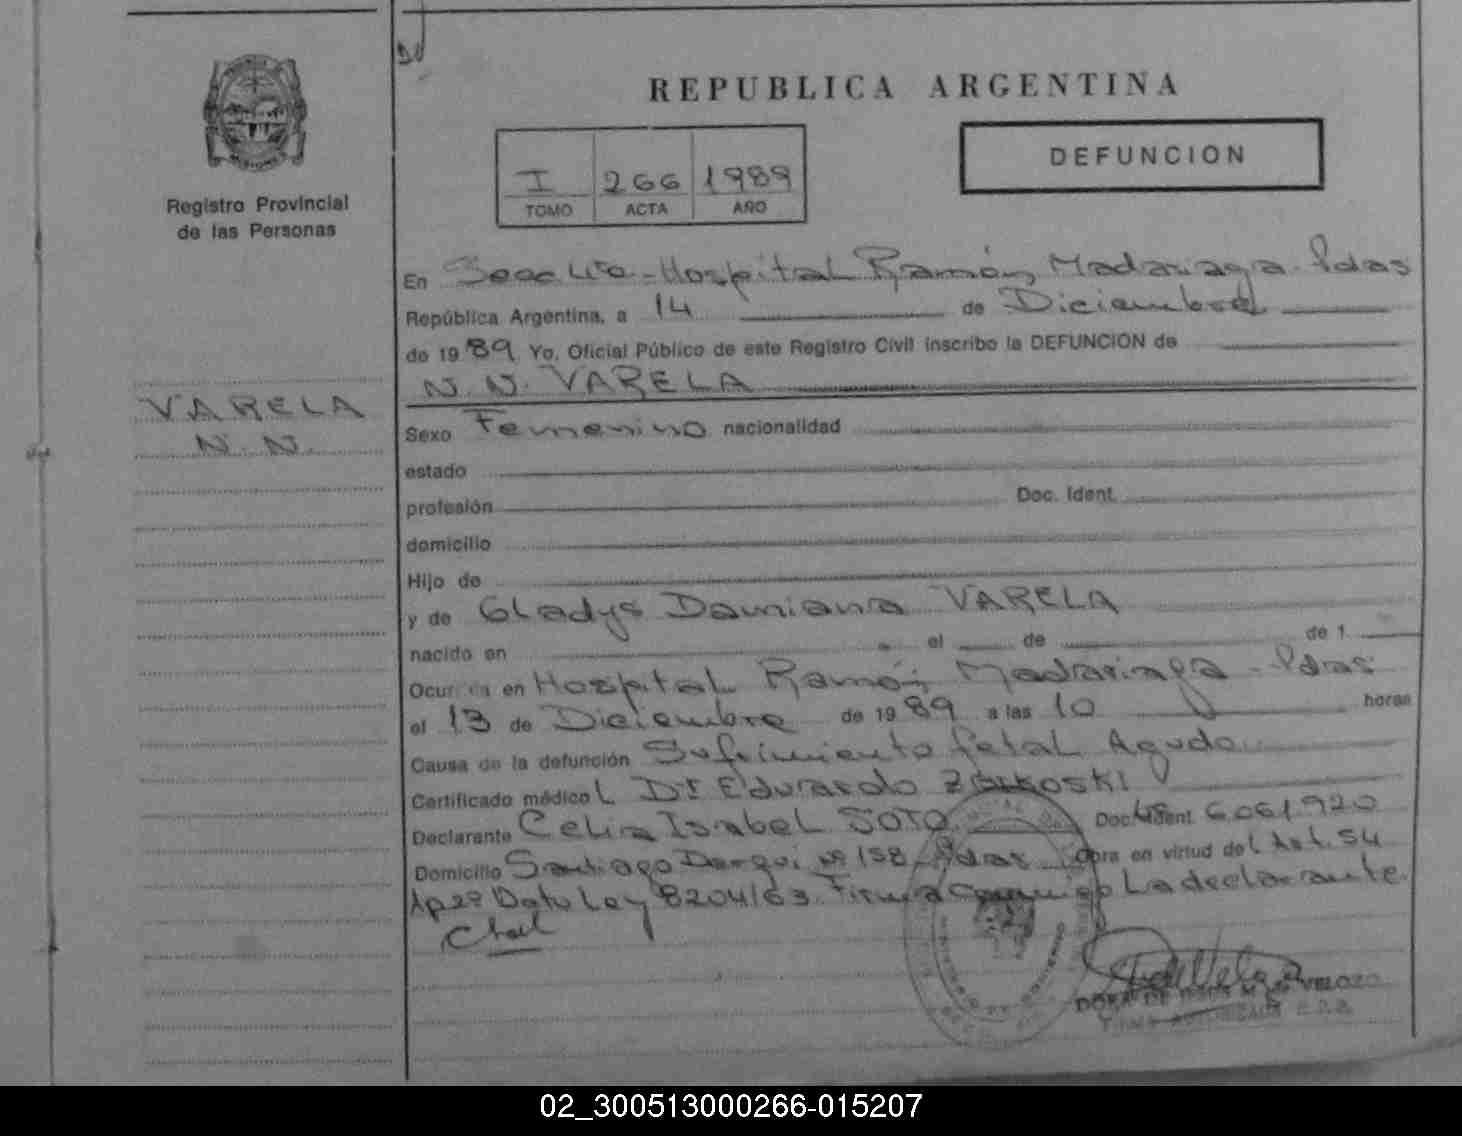 REPUBLICA ARGENTINA
DEFUNCION
I 266 1989
TOMO ACTA AÑO
MISIONES
Registro Provincial
de las Personas
VARELA
N. N.
En Secc 4ta - Hospital Ramón Madariaga - Pdas
República Argentina, a 14 de Diciembre
de 1989 Yo, Oficial Público de este Registro Civil inscribo la DEFUNCION de
N. N. VARELA
Sexo Femenino nacionalidad
estado
profesión Doc. Ident.
domicilio
Hijo de
y de Gladys Damiana VARELA
nacido en el de de 1
Ocurrida en Hospital Ramón Madariaga - Pdas
el 13 de Diciembre de 1989 a las 10 horas
Causa de la defunción Sufrimiento fetal Agudo
Certificado médico Dr Eduardo
Declarante Celia Isabel SOTO Doc. Ident. 6.061.920
Domicilio Santiago Derqui nº 158 - Pdas Obra en virtud del Art. 54
Ap 2º Dcto Ley 8204/63. Firma conmigo La declarante.
DORA DE VELOZO
FIRMA AUTORIZADA
02_300513000266-015207